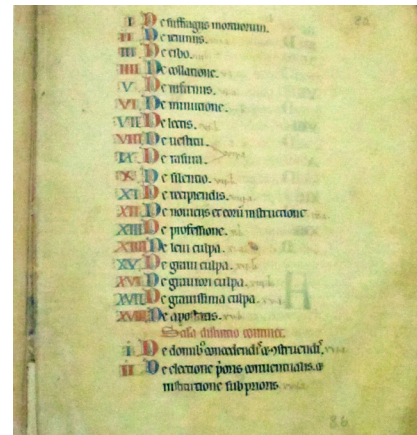 I De suffragiis mortuorum.
II De ieiuniis.
III De cibo.
IIII De collatione.
V De infirmis.
VI De minutione.
VII De lectis.
VIII De uestitu.
IX De rasura.
X De silentio.
XI De recipiendis.
XII De nouiciis et eorum instructione
XIII De professione.
XIIII De leui culpa.
XV De graui culpa.
XVI De grauiori culpa.
XVII De grauissima culpa.
XVIII De apostatis.
distinctio continet.
I De domibus concedendis et construendis.
II De electione prioris conuentualis. et
institutione subprioris
86